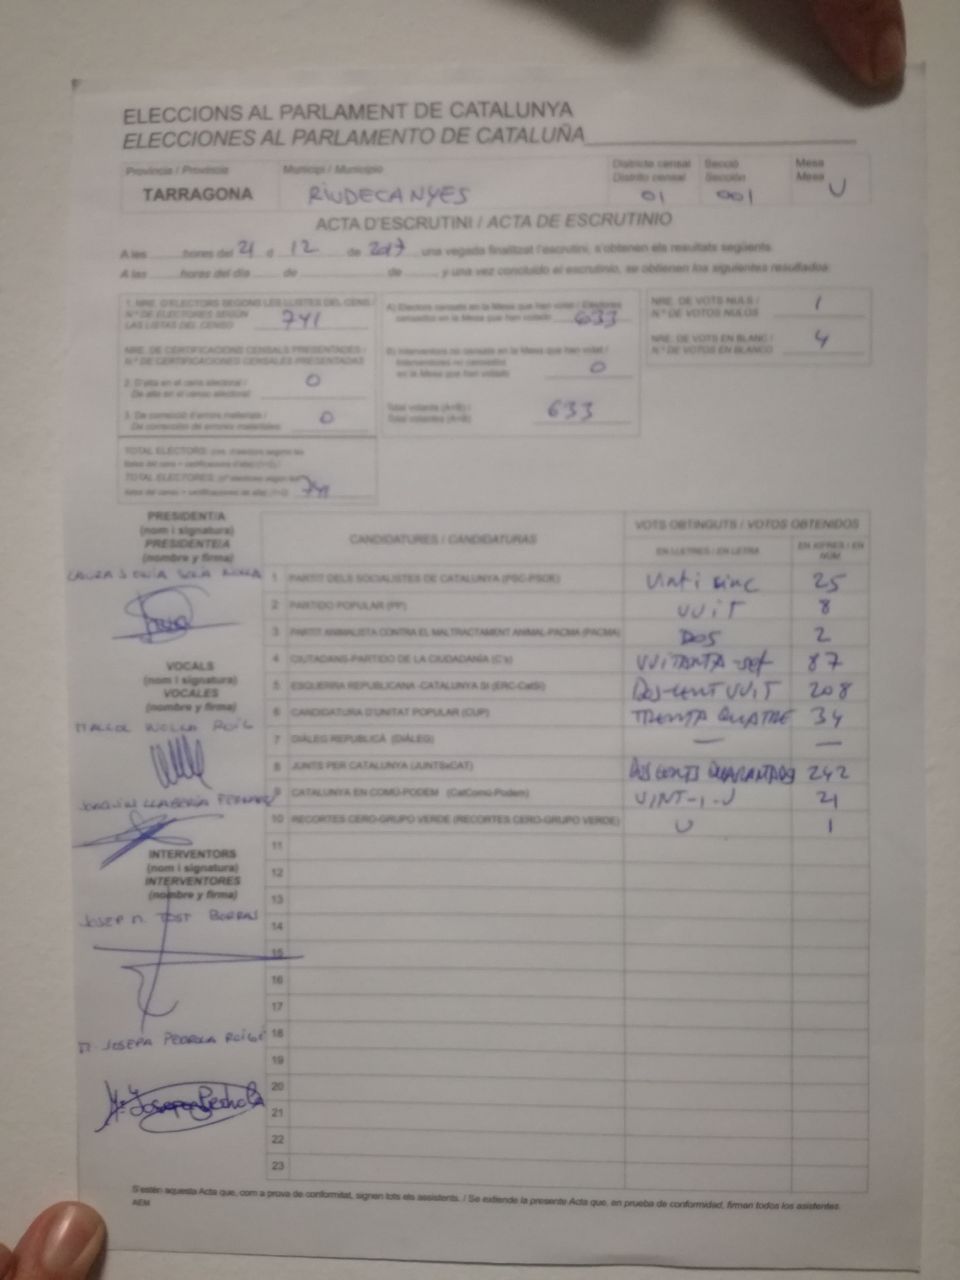 ELECCIONS AL PARLAMENT DE CATALUNYA
ELECCIONES AL PARLAMENTO DE CATALUÑA
Província / Provincia
TARRAGONA
Municipi / Municipio
RIUDECANYES
Districte censal
Distrito censal
01
Secció
Sección
001
Mesa
Mesa
U
ACTA D'ESCRUTINI / ACTA DE ESCRUTINIO
A les hores del 21 d 12 de 2017, una vegada finalitzat l'escrutini, s'obtenen els resultats següents:
A las hores del día de de y una vez concluido el escrutinio, se obtienen los siguientes resultados:
1. NRE. D'ELECTORS SEGONS LES LLISTES DEL CENS /
N.º DE ELECTORES SEGÚN
LAS LISTAS DEL CENSO 741
NRE. DE CERTIFICACIONS CENSALS PRESENTADES /
N.º DE CERTIFICACIONES CENSALES PRESENTADAS
2. D'alta en el cens electoral /
De alta en el censo electoral 0
3. De correcció d'errors materials /
De corrección de errores materiales 0
TOTAL ELECTORS:
TOTAL ELECTORES: 741
A) Electors censats en la Mesa que han votat / Electores
censados en la Mesa que han votado 633
B) Interventors no censats en la Mesa que han votat /
Interventores no censados
en la Mesa que han votado 0
Total votants (A+B) /
Total votantes (A+B) 633
NRE. DE VOTS NULS /
N.º DE VOTOS NULOS 1
NRE. DE VOTS EN BLANC /
N.º DE VOTOS EN BLANCO 4
PRESIDENT/A
(nom i signatura)
PRESIDENTE/A
(nombre y firma)
VOCALS
(nom i signatura)
VOCALES
(nombre y firma)
INTERVENTORS
(nom i signatura)
INTERVENTORES
(nombre y firma)
JOSEP M. TOST BORRAS
M. JOSEPA PEDROLA ROIGÉ
CANDIDATURES / CANDIDATURAS
VOTS OBTINGUTS / VOTOS OBTENIDOS
EN LLETRES / EN LETRA
EN XIFRES / EN NÚM
1 PARTIT DELS SOCIALISTES DE CATALUNYA (PSC-PSOE) Vinti cinc 25
2 PARTIDO POPULAR (PP) VUIT 8
3 PARTIT ANIMALISTA CONTRA EL MALTRACTAMENT ANIMAL-PACMA (PACMA) DOS 2
4 CIUTADANS-PARTIDO DE LA CIUDADANÍA (C's) VUITANTA-SET 87
5 ESQUERRA REPUBLICANA -CATALUNYA SÍ (ERC-CatSí) DOS-CENT VUIT 208
6 CANDIDATURA D'UNITAT POPULAR (CUP) TRENTA QUATRE 34
7 DIÀLEG REPÚBLICA (DIÀLEG) — —
8 JUNTS PER CATALUNYA (JUNTSxCAT) DOS CENTS QUARANTADOS 242
9 CATALUNYA EN COMÚ-PODEM (CatComú-Podem) VINT-I-U 21
10 RECORTES CERO-GRUPO VERDE (RECORTES CERO-GRUPO VERDE) U 1
11
12
13
14
15
16
17
18
19
20
21
22
23
S'estén aquesta Acta que, com a prova de conformitat, signen tots els assistents. / Se extiende la presente Acta que, en prueba de conformidad, firman todos los asistentes.
AEM